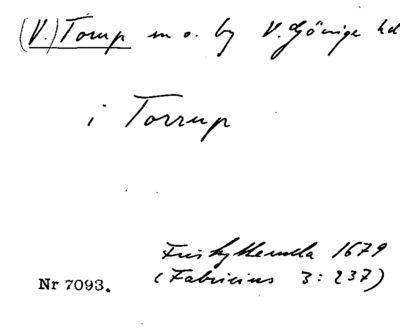 (V.) Torup m o. by V. Göinge hd
i Torrup
Friskyttarulla 1679
(Fabricius 3:237)
Nr 7093.